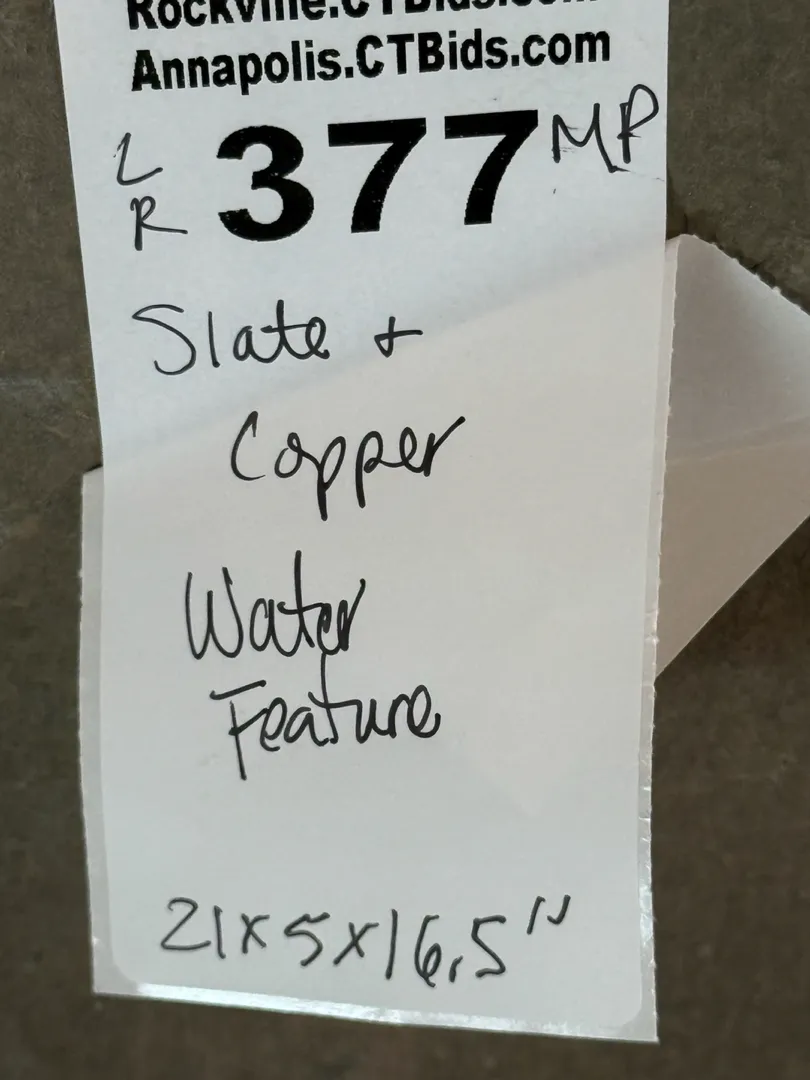 Rockville.CTBids.com
Annapolis.CTBids.com
L R 377 MP
Slate +
Copper
Water
Feature
21x5x16.5"